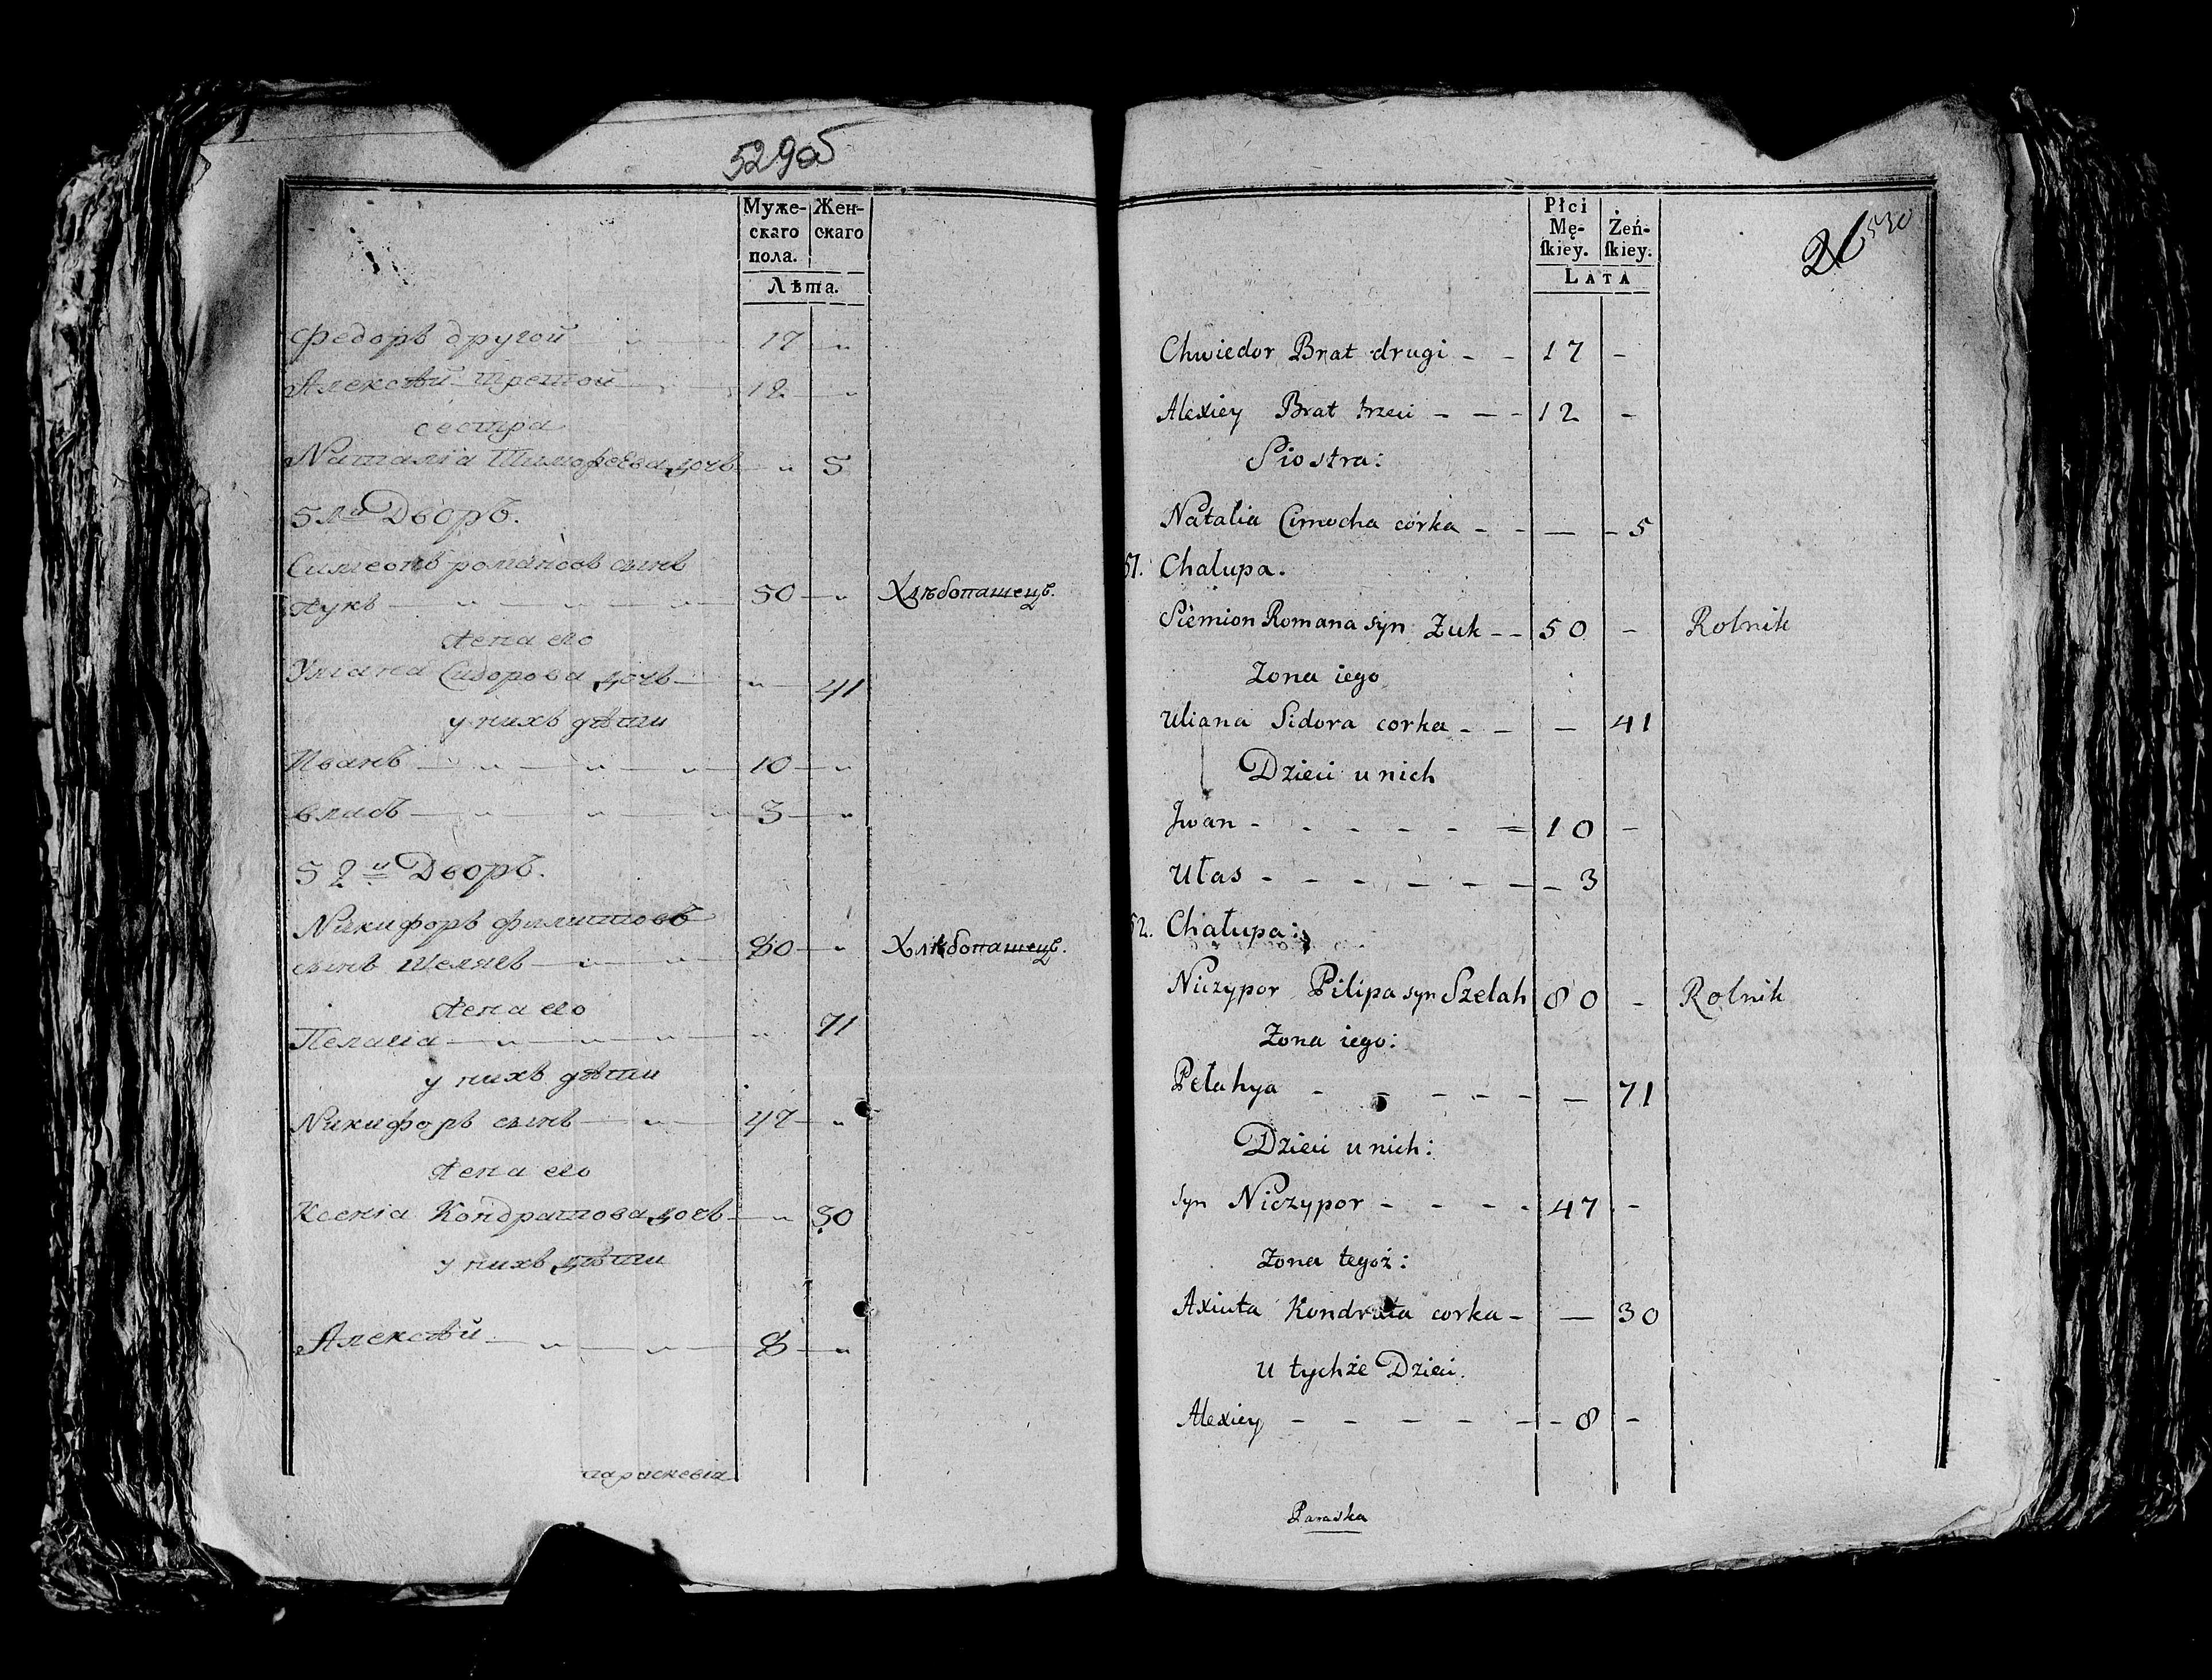 529об
Муже- Жен-
скаго скаго
пола.
Лѣта.
Федоръ другой 17 „
Алексѣй третой 12 „
сестра
Наталіа Тимофеева дочь „ 5
51й Дворъ.
Симеонъ романовъ сынъ
Жукъ 50 „ Хлѣбопашецъ.
Жена его
Уліана Сидорова дочь „ 41
у нихъ дѣти
Иванъ 10 „
власъ 3 „
52й Дворъ.
Никифоръ филиповъ
сынъ Шелягъ 80 „ Хлѣбопашецъ.
Жена его
Пелагіа „ 71
у нихъ дѣти
Никифоръ сынъ 47 „
Жена его
Ксеніа Кондратова дочь „ 30
у нихъ дѣти
Алексѣй 8 „
параскевіа
Płci
Mę- Żeń-
ſkiey. ſkiey.
LATA
530
Chwiedor Brat drugi - - 17 -
Alexiey Brat trzeci - - - 12 -
Siostra:
Natalia Cimocha córka - - — - 5
51. Chalupa.
Siemion Romana syn Żuk - - 50 - Rolnik
Zona iego
Uliana Sidora corka - - — 41
Dzieci u nich
Jwan - - - - - = 10 -
Ułas - - - - - - - 3
52. Chałupa:
Niczypor Pilipa syn Szelah 80 - Rolnik
Zona iego:
Pełahya - - - - - — 71
Dzieci u nich:
syn Niczypor - - - - 47 -
Zona tegoż:
Axiuta Kondrata corka - — 30
U tychże Dzieci.
Alexiey - - - - - - 8 -
Paraska